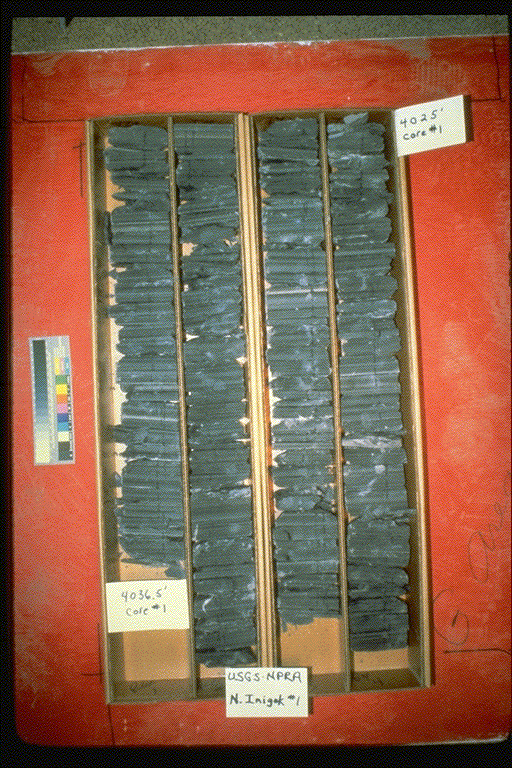 4025'
core #1
4036.5'
core #1
USGS-NPRA
N. Inigok #1